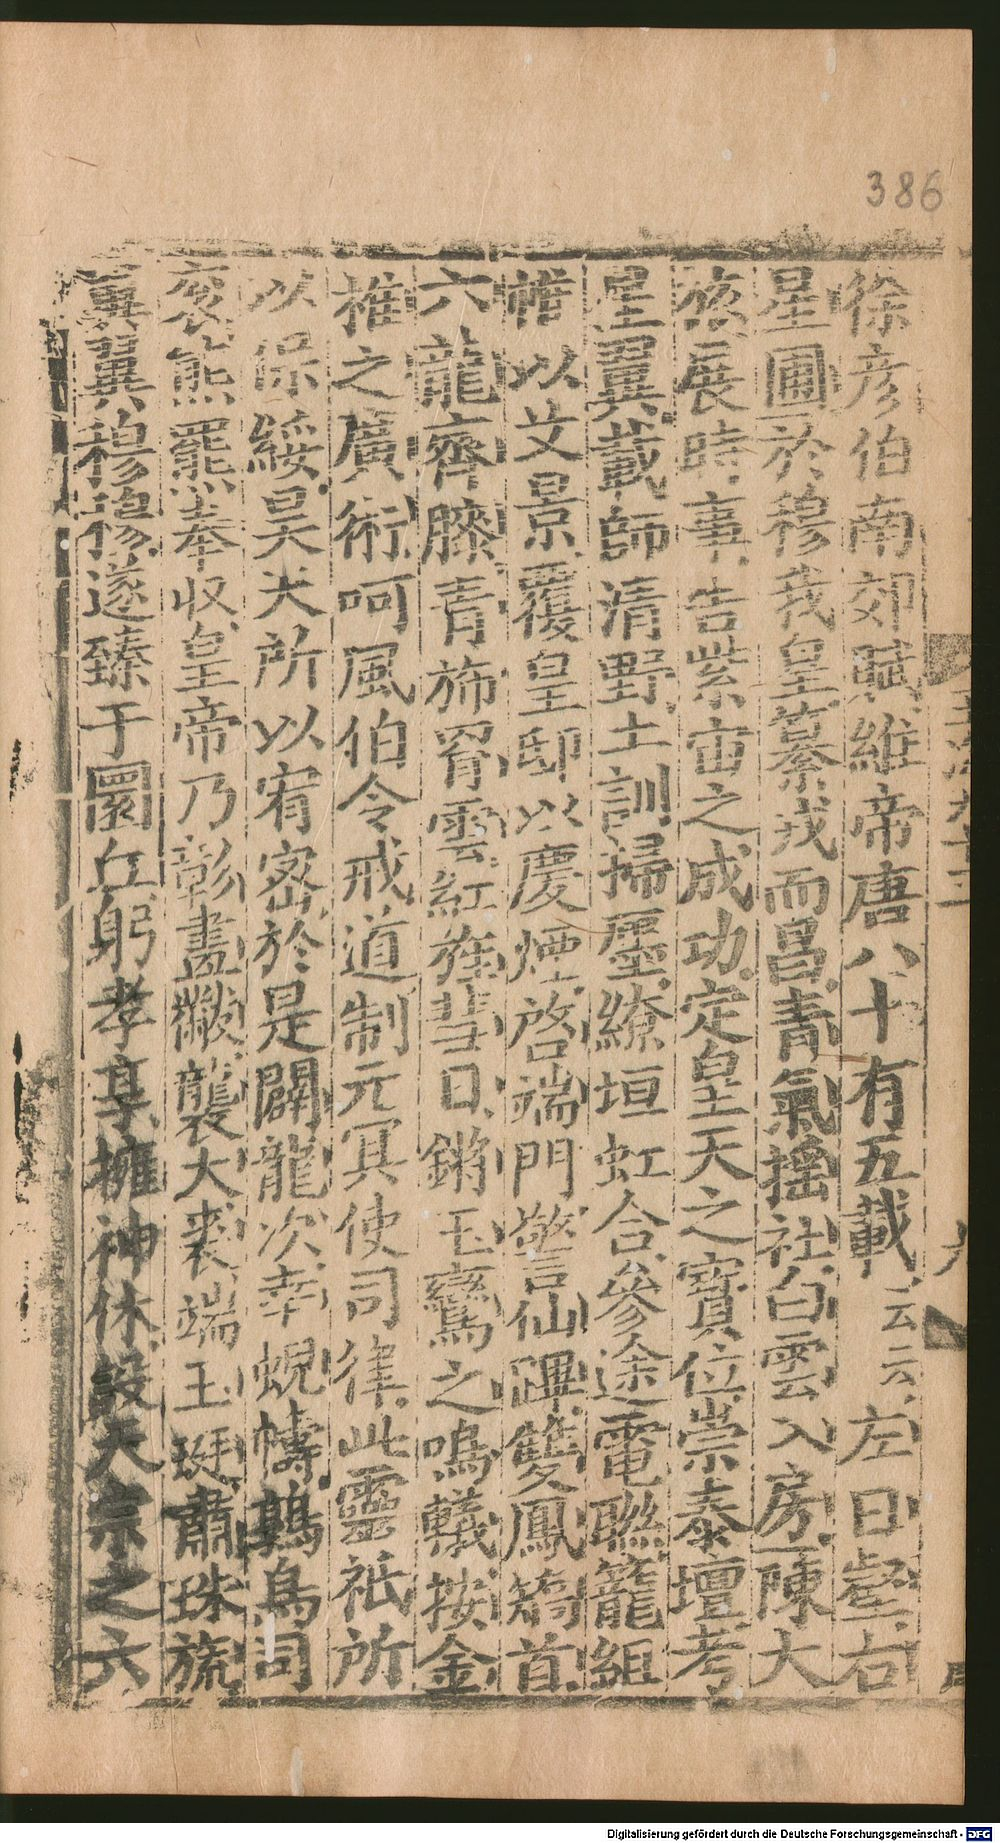 386
徐彦伯南郊賦維帝唐八十有五載云云左日壑右
星圃於穆我皇纂戎而昌青氣揺社白雲入房陳大
烝展時事告紫宙之成功定皇天之寳位崇泰壇考
星翼蕆師清野土訓掃壓繚垣虹合參途電聯籠組
帷以艾景覆皇邸以慶煙啓端門警仙蹕雙鳳簥首
六龍齊膝青斾罥雲紅旌彗日鏘玉鸞之鳴轙按金
椎之廣術呵風伯令戒道制元冥使司律此靈祇所
以保綏昊天所以宥宻於是闢龍次幸蜺幬鶉鳥司
衮熊羆奉収皇帝乃彰畫黻襲大裘端玉珽肅珠旒
翼翼穆穆遂臻于圜丘躬孝享擁神休設天宗之六
Digitalisierung gefördert durch die Deutsche Forschungsgemeinschaft - DFG